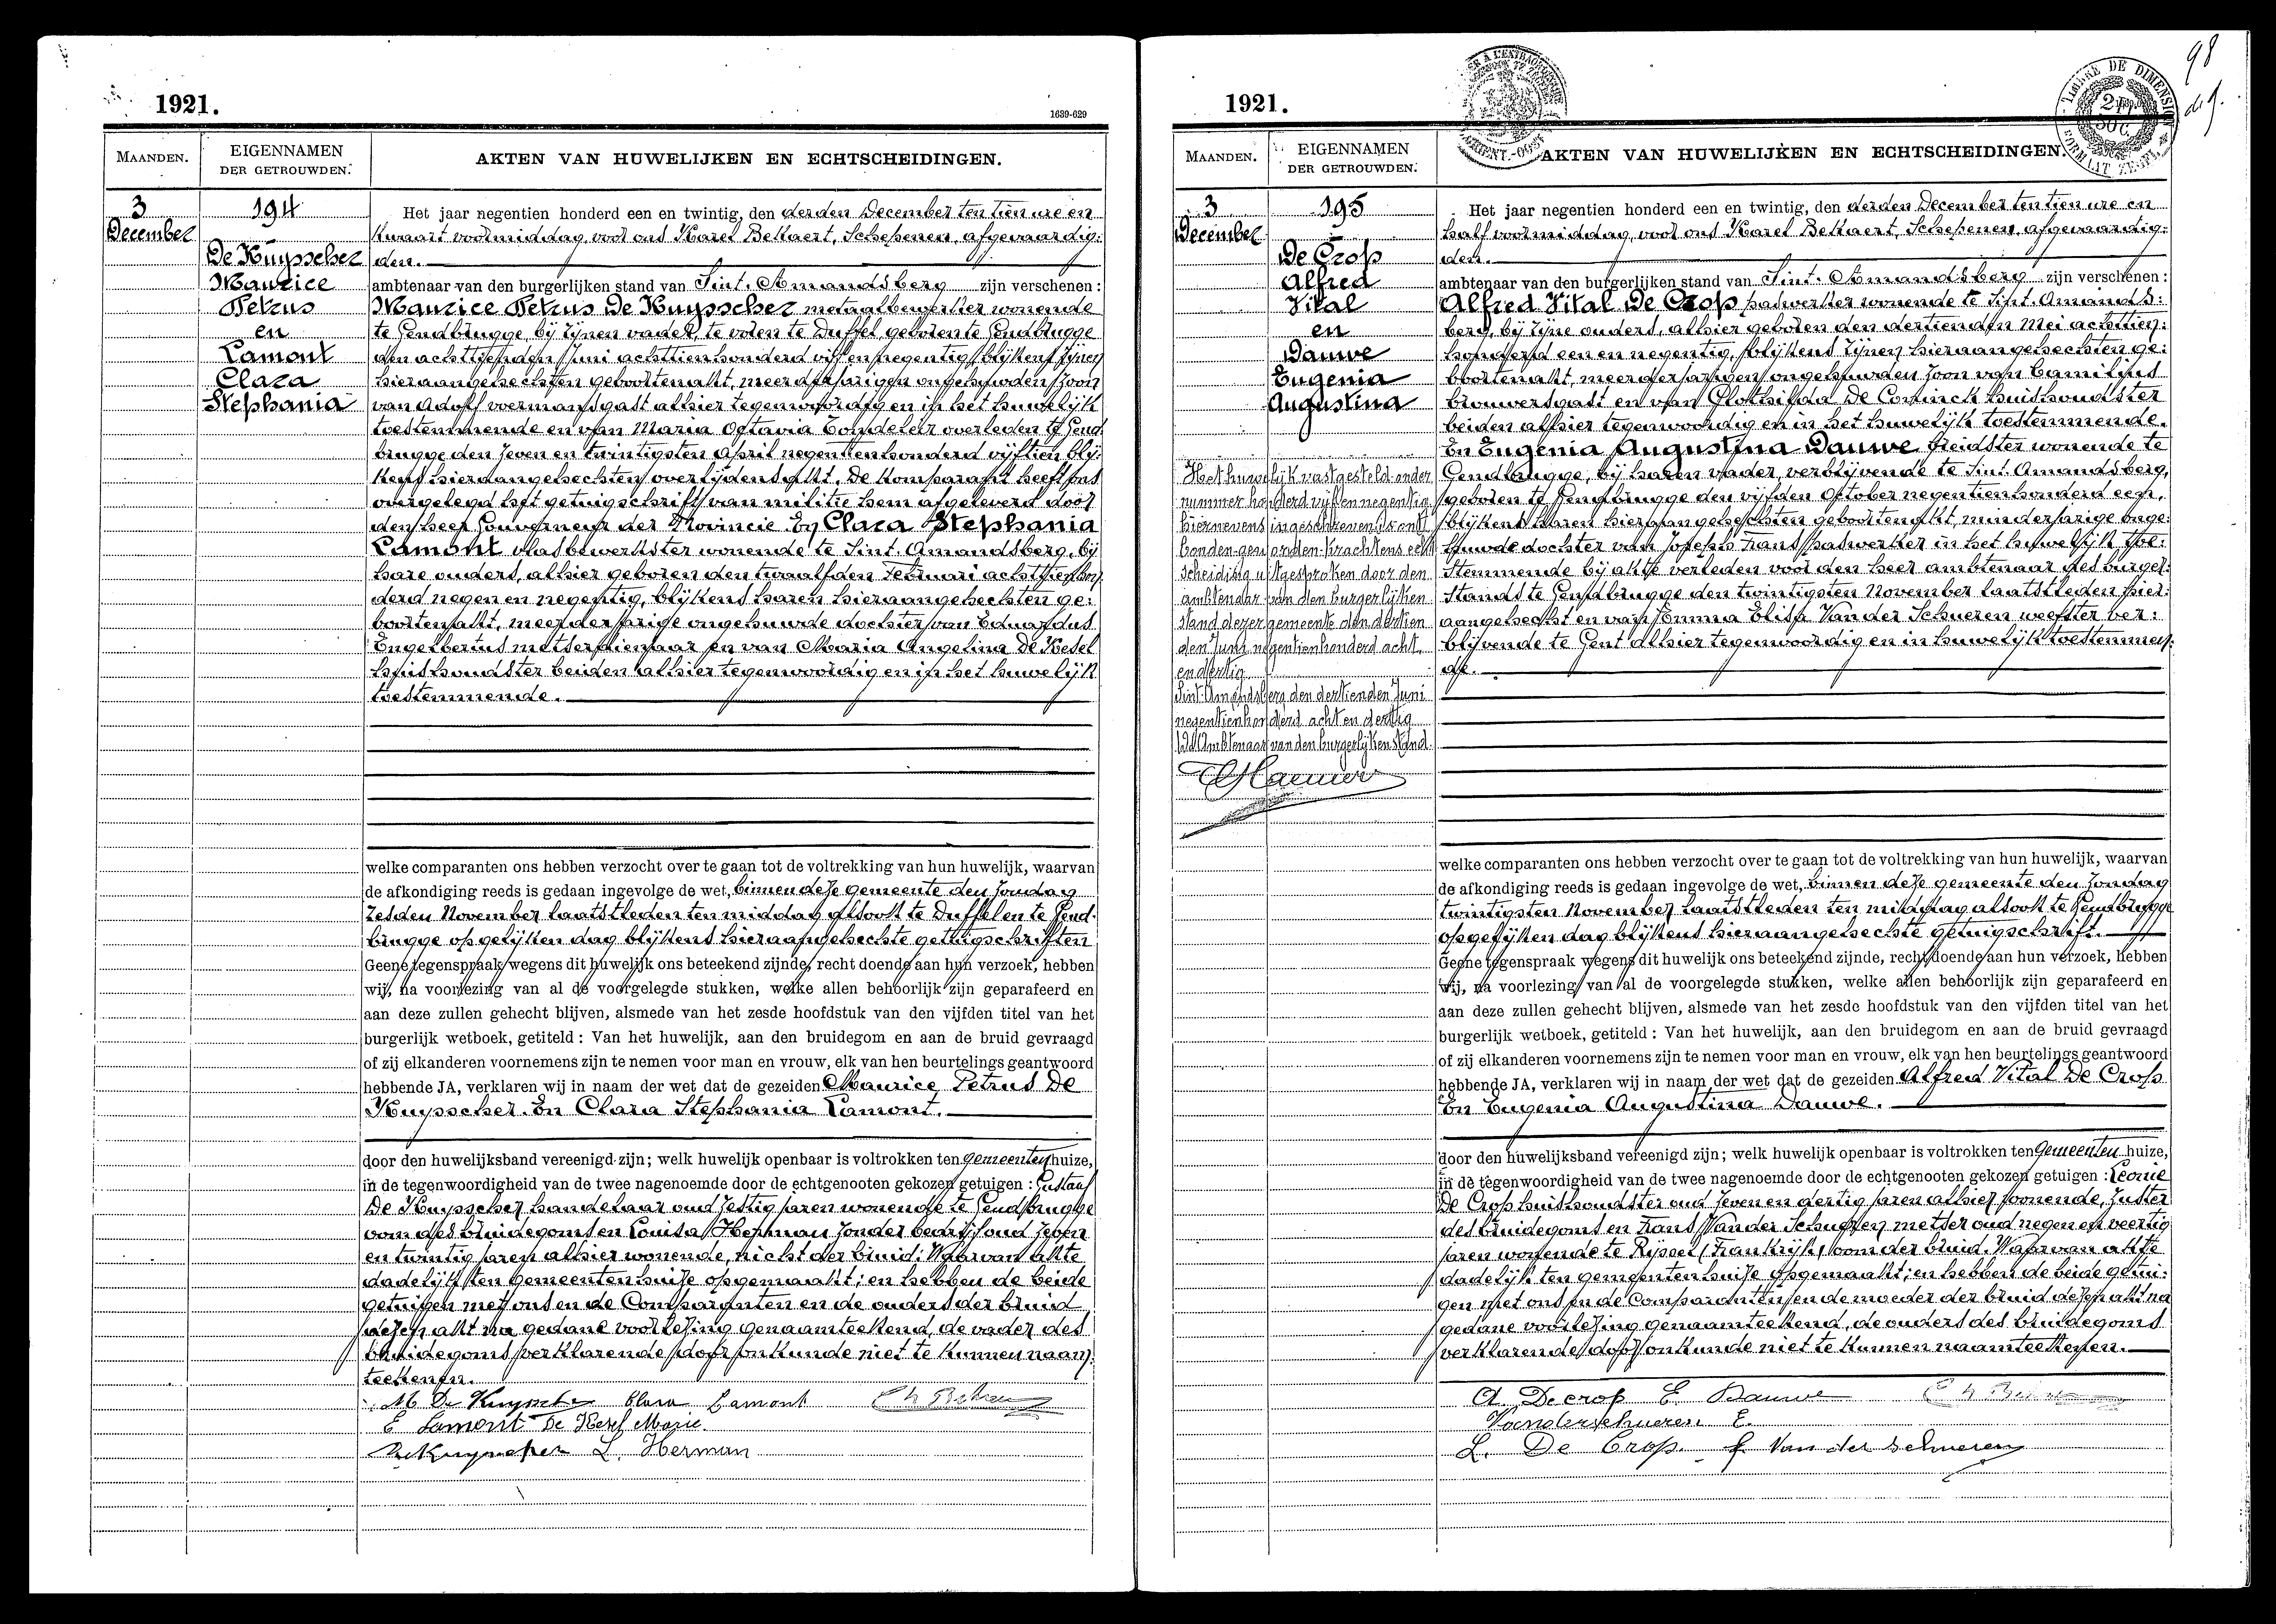 1921.
1639-629
MAANDEN.
EIGENNAMEN
DER GETROUWDEN.
AKTEN VAN HUWELIJKEN EN ECHTSCHEIDINGEN.
3
December
194
De Kuysscher
Maurice
Petrus
en
Lamont
Clara
Stephania
Het jaar negentien honderd een en twintig, den derden December ten tien ure en
kwaart voormiddag, voor ons Karel Bekaert, Schepenen, afgevaardig:
den.
ambtenaar van den burgerlijken stand van Sint. Amandsberg zijn verschenen :
Maurice Petrus De Kuysscher metaalbewerker wonende
te Gendbrugge, bij zijnen vader, te voren te Duffel, geboren te Gendbrugge
den achttienden Juni achttienhonderd vijf en negentig, blijkens zijnen
hieraangehechten geboortenakt, meerderjarigen ongehuwden zoon
van Adolf voermansgast alhier tegenwoordig en in het huwelijk
toestemmende en van Maria Octavia Condeleir overleden te Gend
brugge den zeven en twintigsten April negentienhonderd vijftien blij:
kens hieraangehechten overlijdensakt. De komparant heeft ons
overgelegd het getuigschrift van militie hem afgeleverd door
den heer Gouverneur der Provincie. En Clara Stephania
Lamont vlasbewerkster wonende te Sint. Amandsberg, bij
hare ouders, alhier geboren den twaalfden Februari achttienhon
derd negen en negentig, blijkens haren hieraangehechten ge:
boortenakt, meerderjarige ongehuwde dochter van Eduardus
Engelbertus metserdienaar en van Maria Angelina De Kesel
huishoudster beiden alhier tegenwoordig en in het huwelijk
toestemmende.
welke comparanten ons hebben verzocht over te gaan tot de voltrekking van hun huwelijk, waarvan
de afkondiging reeds is gedaan ingevolge de wet, binnen deze gemeente den zondag
zesden November laatstleden ten middag alsook te Duffel en te Gend.
brugge op gelijken dag blijkens hieraangehechte getuigschriften
Geene tegenspraak wegens dit huwelijk ons beteekend zijnde, recht doende aan hun verzoek, hebben
wij, na voorlezing van al de voorgelegde stukken, welke allen behoorlijk zijn geparafeerd en
aan deze zullen gehecht blijven, alsmede van het zesde hoofdstuk van den vijfden titel van het
burgerlijk wetboek, getiteld : Van het huwelijk, aan den bruidegom en aan de bruid gevraagd
of zij elkanderen voornemens zijn te nemen voor man en vrouw, elk van hen beurtelings geantwoord
hebbende JA, verklaren wij in naam der wet dat de gezeiden Maurice Petrus De
Kuysscher. En Clara Stephania Lamont.
door den huwelijksband vereenigd zijn; welk huwelijk openbaar is voltrokken ten gemeentenhuize,
in de tegenwoordigheid van de twee nagenoemde door de echtgenooten gekozen getuigen : Gustaaf
De Kuysscher handelaar oud zestig jaren wonende te Gendbrugge
oom des bruidegoms en Louisa Herman zonder bedrijf oud zeven
en twintig jaren alhier wonende, nicht der bruid. Waarvan akte
dadelijk ten gemeentenhuize opgemaakt; en hebben de beide
getuigen met ons en de Comparanten en de ouders der bruid
dezen akt na gedane voorlezing genaamteekend, de vader des
bruidegoms verklarende door onkunde niet te kunnen naam:
teekenen.
M De Kuyscher Clara Lamont
E Lamont De Kesel Marie
DeKuyscher L. Herman
1921.
98
MAANDEN.
EIGENNAMEN
DER GETROUWDEN.
AKTEN VAN HUWELIJKEN EN ECHTSCHEIDINGEN.
3
December
195
De Crop
Alfred
Vital
en
Dauwe
Eugenia
Augustina
Het huwelijk vastgesteld onder
nummer honderd vijf en negentig
hiernevens ingeschreven is ont
bonden geworden krachtens echt
scheiding uitgesproken door den
ambtenaar van den burgerlijken
stand dezer gemeente den dertien
den Juni negentienhonderd acht
en dertig.
Sint-Amandsberg den dertienden Juni
negentienhonderd acht en dertig
De Ambtenaar van den burgerlijken stand.
Het jaar negentien honderd een en twintig, den derden December ten tien ure en
half voormiddag, voor ons Karel Bekaert, Schepenen, afgevaardig:
den.
ambtenaar van den burgerlijken stand van Sint. Amandsberg zijn verschenen :
Alfred Vital De Crop paswerker wonende te Sint. Amands:
berg, bij zijne ouders, alhier geboren den dertienden Mei achttien:
honderd een en negentig, blijkens zijnen hieraangehechten ge:
boortenakt, meerderjarigen ongehuwden zoon van Camilius
brouwersgast en van Clothilda De Coninck huishoudster
beiden alhier tegenwoordig en in het huwelijk toestemmende.
En Eugenia Augustina Dauwe breidster wonende te
Gendbrugge, bij haren vader, verblijvende te Sint. Amandsberg,
geboren te Gendbrugge den vijfden October negentienhonderd een,
blijkens haren hieraangehechten geboortenakt, minderjarige onge:
huwde dochter van Joseph Frans paswerker in het huwelijk toe:
stemmende bij akte verleden voor den heer ambtenaar des burger:
stands te Gendbrugge den twintigsten November laatstleden hier:
aangehecht en van Emma Elisa Van der Schueren weefster ver:
blijvende te Gent alhier tegenwoordig en in huwelijk toestemmen:
de.
welke comparanten ons hebben verzocht over te gaan tot de voltrekking van hun huwelijk, waarvan
de afkondiging reeds is gedaan ingevolge de wet, binnen deze gemeente den zondag
twintigsten November laatstleden ten middag alsook te Gendbrugge
op gelijken dag blijkens hieraangehechte getuigschrift.
Geene tegenspraak wegens dit huwelijk ons beteekend zijnde, recht doende aan hun verzoek, hebben
wij, na voorlezing van al de voorgelegde stukken, welke allen behoorlijk zijn geparafeerd en
aan deze zullen gehecht blijven, alsmede van het zesde hoofdstuk van den vijfden titel van het
burgerlijk wetboek, getiteld : Van het huwelijk, aan den bruidegom en aan de bruid gevraagd
of zij elkanderen voornemens zijn te nemen voor man en vrouw, elk van hen beurtelings geantwoord
hebbende JA, verklaren wij in naam der wet dat de gezeiden Alfred Vital De Crop
En Eugenia Augustina Dauwe.
door den huwelijksband vereenigd zijn; welk huwelijk openbaar is voltrokken ten Gemeentenhuize,
in de tegenwoordigheid van de twee nagenoemde door de echtgenooten gekozen getuigen : Leonie
De Crop huishoudster oud zeven en dertig jaren alhier wonende, zuster
des bruidegoms en Frans Van der Schueren metser oud negen en veertig
jaren wonende te Rijssel (Frankrijk) oom der bruid. Waarvan akte
dadelijk ten gemeentenhuize opgemaakt; en hebben de beide getui:
gen met ons en de Comparanten en de moeder der bruid dezen akt na
gedane voorlezing genaamteekend, de ouders des bruidegoms
verklarende door onkunde niet te kunnen naamteekenen.
A. Decrop E. Dauwe
Vanderschueren E.
L. De Crop. f Van der schueren